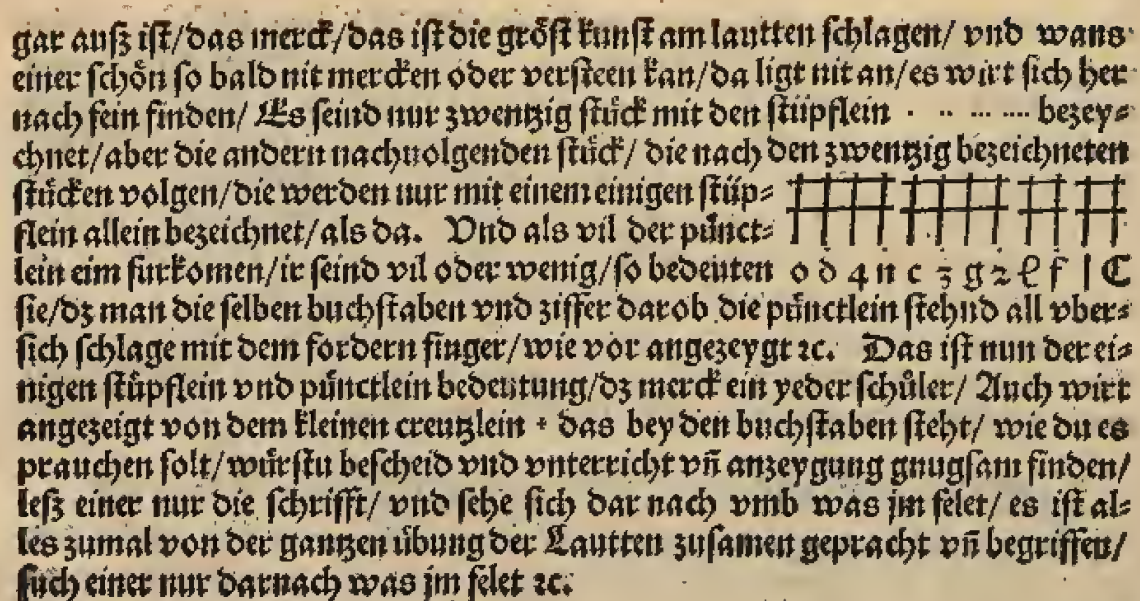 gar auſz iſt/das merck/das iſt die gröſt kunſt am lautten ſchlagen/ vnd wans
einer ſchön ſo bald nit mercken oder verſteen kan/da ligt nit an/es wirt ſich her
nach fein finden/ Es ſeind nur zwentzig ſtück mit den ſtüpflein · ·· ··· ···· bezey⸗
chnet/aber die andern nachuolgenden ſtück/ die nach den zwentzig bezeichneten
ſtücken volgen/die werden nur mit einem einigen ſtüp⸗
flein allein bezeichnet/als da. Vnd als vil der pünct⸗
lein eim fürkomen/ir ſeind vil oder wenig/ſo bedeuten o d 4 n c 3 g 2 ℓ f | C
ſie/dz man die ſelben buchſtaben vnd ziffer darob die pünctlein ſtehnd all vber⸗
ſich ſchlage mit dem fordern finger/wie vor angezeygt ꝛc. Das iſt nun der ei⸗
nigen ſtüpflein vnd pünctlein bedeutung/dz merck ein yeder ſchüler/ Auch wirt
angezeigt von dem kleinen creutzlein + das bey den buchſtaben ſteht/ wie du es
prauchen ſolt/würſtu beſcheid vnd vnterricht vñ anzeygung gnugſam finden/
leſz einer nur die ſchrifft/ vnd ſehe ſich dar nach vmb was jm felet/ es iſt al⸗
les zumal von der gantzen übung der Lautten zuſamen gepracht vñ begriffen/
ſuch einer nur darnach was jm felet ꝛc.